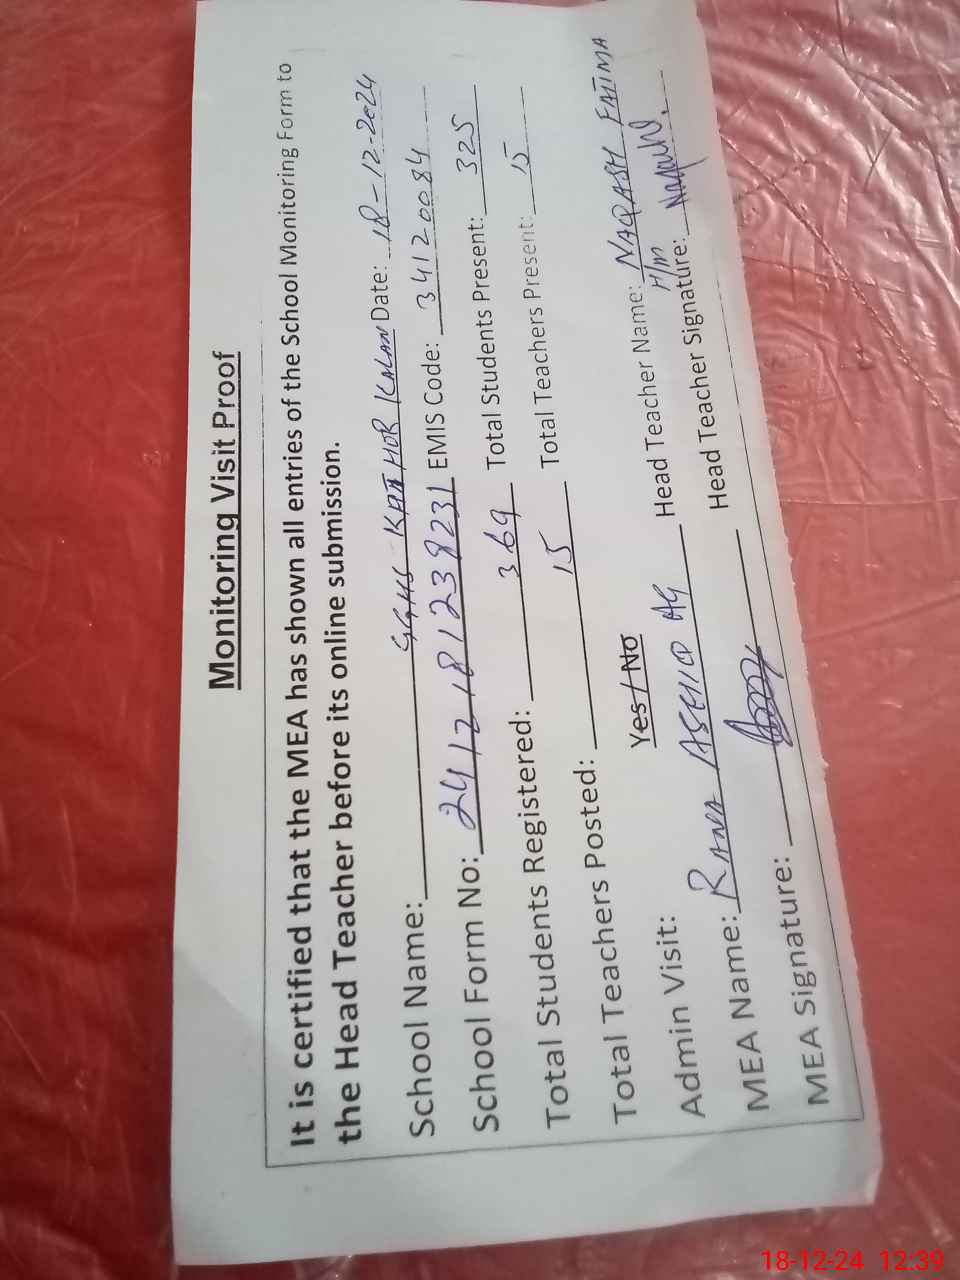 Monitoring Visit Proof
It is certified that the MEA has shown all entries of the School Monitoring Form to
the Head Teacher before its online submission.
School Name: GGHS KATHOR KALAN Date: 18-12-2024
School Form No: 2412181238231 EMIS Code: 34120084
Total Students Registered: 369 Total Students Present: 325
Total Teachers Posted: 15 Total Teachers Present: 15
Admin Visit: Yes / No
MEA Name: RANA ASHIQ Head Teacher Name: NAQASH FATIMA
H/M
MEA Signature: Head Teacher Signature:
18-12-24 12:39